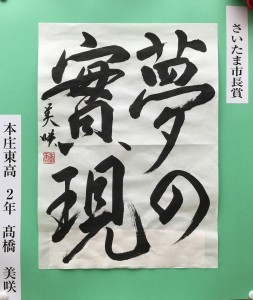 さいたま市長賞
夢の
實現
美咲
本庄東高 2年 髙橋 美咲